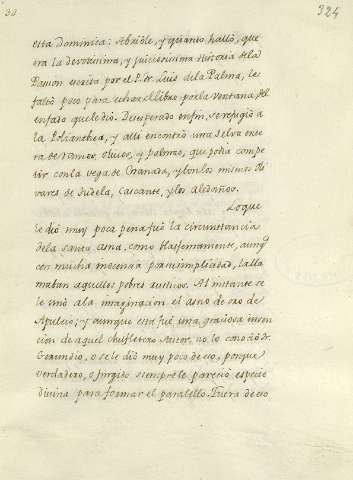 30
324
esta Dominica: Abriòle, y quanto hallò, que
era la devotisima, y juiciosisima Historia dela
Passion escrita por el P. dr. Luis dela Palma, le
faltò poco para echar el libro por la ventana del
enfado que le diò. Desesperado enfin, se refugiò a
la Poliantea, y alli encontrò una selva ente
ra de ramos, olivos, y palmas, que podia compe
tir con la vega de Granada, y con los mismos oli
vares de Tudela, Cascante, y los aledaños.
Loque
le diò muy poca pena fuè la circunstancia
dela santa asna, como blasfemamente, aunq.
con mucha inocencia por su simplicidad, la lla
maban aquellos pobres rusticos. Al instante se
le vino ala imaginacion el asno de oro de
Apuleio; y aunque esta fuè una graciosa inven
cion de aquel chufletero Autor, no lo conociò Fr.
Gerundio, o se le diò muy poco de eso, porque
verdadero, o fingido siempre le pareciò especie
divina para formar el paralelo. Fuera de eso